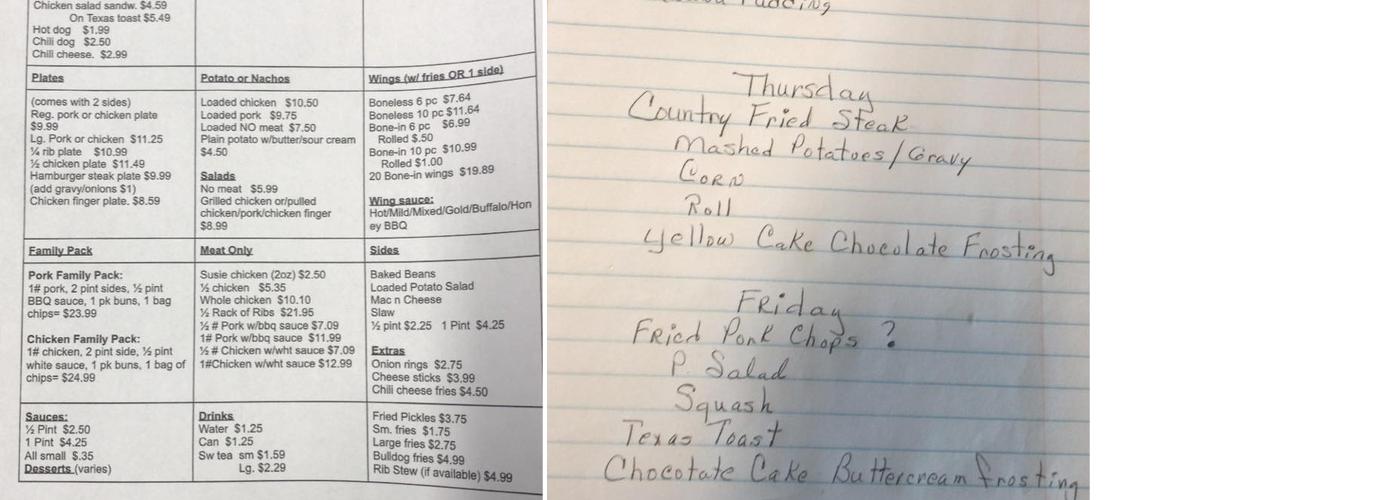 Chicken salad sandw. $4.59
On Texas toast $5.49
Hot dog $1.99
Chili dog $2.50
Chili cheese. $2.99
Plates
(comes with 2 sides)
Reg. pork or chicken plate
$9.99
Lg. Pork or chicken $11.25
¼ rib plate $10.99
½ chicken plate $11.49
Hamburger steak plate $9.99
(add gravy/onions $1)
Chicken finger plate. $8.59
Potato or Nachos
Loaded chicken $10.50
Loaded pork $9.75
Loaded NO meat $7.50
Plain potato w/butter/sour cream
$4.50
Salads
No meat $5.99
Grilled chicken or/pulled
chicken/pork/chicken finger
$8.99
Wings (w/ fries OR 1 side)
Boneless 6 pc $7.64
Boneless 10 pc $11.64
Bone-in 6 pc $6.99
Rolled $.50
Bone-in 10 pc $10.99
Rolled $1.00
20 Bone-in wings $19.89
Wing sauce:
Hot/Mild/Mixed/Gold/Buffalo/Hon
ey BBQ
Family Pack
Pork Family Pack:
1# pork, 2 pint sides, ½ pint
BBQ sauce, 1 pk buns, 1 bag
chips= $23.99
Chicken Family Pack:
1# chicken, 2 pint side, ½ pint
white sauce, 1 pk buns, 1 bag of
chips= $24.99
Meat Only
Susie chicken (2oz) $2.50
½ chicken $5.35
Whole chicken $10.10
½ Rack of Ribs $21.95
½ # Pork w/bbq sauce $7.09
1# Pork w/bbq sauce $11.99
½ # Chicken w/wht sauce $7.09
1#Chicken w/wht sauce $12.99
Sides
Baked Beans
Loaded Potato Salad
Mac n Cheese
Slaw
½ pint $2.25 1 Pint $4.25
Extras
Onion rings $2.75
Cheese sticks $3.99
Chili cheese fries $4.50
Sauces:
½ Pint $2.50
1 Pint $4.25
All small $.35
Desserts (varies)
Drinks
Water $1.25
Can $1.25
Sw tea sm $1.59
Lg. $2.29
Fried Pickles $3.75
Sm. fries $1.75
Large fries $2.75
Bulldog fries $4.99
Rib Stew (if available) $4.99
Thursday
Country Fried Steak
Mashed Potatoes/Gravy
Corn
Roll
Yellow Cake Chocolate Frosting
Friday
Fried Pork Chops ?
P. Salad
Squash
Texas Toast
Chocotate Cake Buttercream frosting